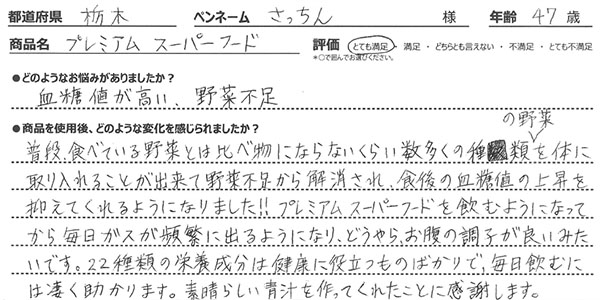 都道府県 栃木 ペンネーム さっちん 様 年齢 47 歳
商品名 プレミアム スーパーフード 評価 とても満足 ・ 満足 ・ どちらとも言えない ・ 不満足 ・ とても不満足
*○で囲んでお選びください。
●どのようなお悩みがありましたか？
血糖値が高い、野菜不足
●商品を使用後、どのような変化を感じられましたか？
の野菜
普段、食べている野菜とは比べ物にならないくらい数多くの種類を体に
取り入れることが出来て野菜不足から解消され、食後の血糖値の上昇を
抑えてくれるようになりました!! プレミアムスーパーフードを飲むようになって
から毎日ガスが頻繁に出るようになり、どうやら、お腹の調子が良いみた
いです。22種類の栄養成分は健康に役立つものばかりで、毎日飲むに
は凄く助かります。素晴らしい青汁を作ってくれたことに感謝します。